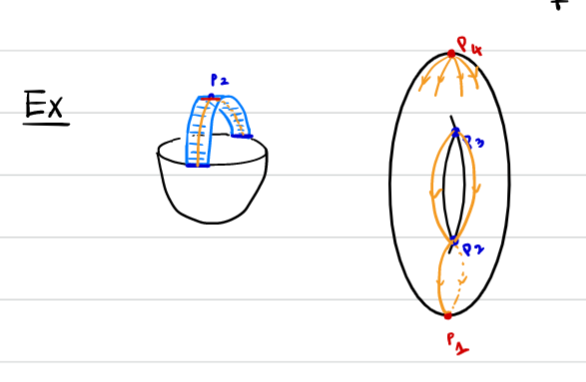 Ex
P2
P4
P3
P2
P1